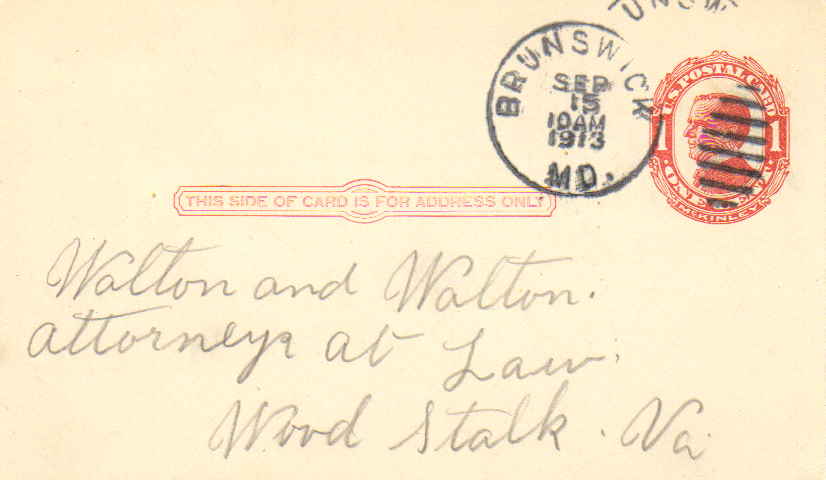 UNSW
BRUNSWICK
SEP
15
10 AM
1913
MD.
U.S. POSTAL CARD
1 1
McKINLEY
THIS SIDE OF CARD IS FOR ADDRESS ONLY
Walton and Walton.
Attorneys at Law.
Wood Stalk. Va.